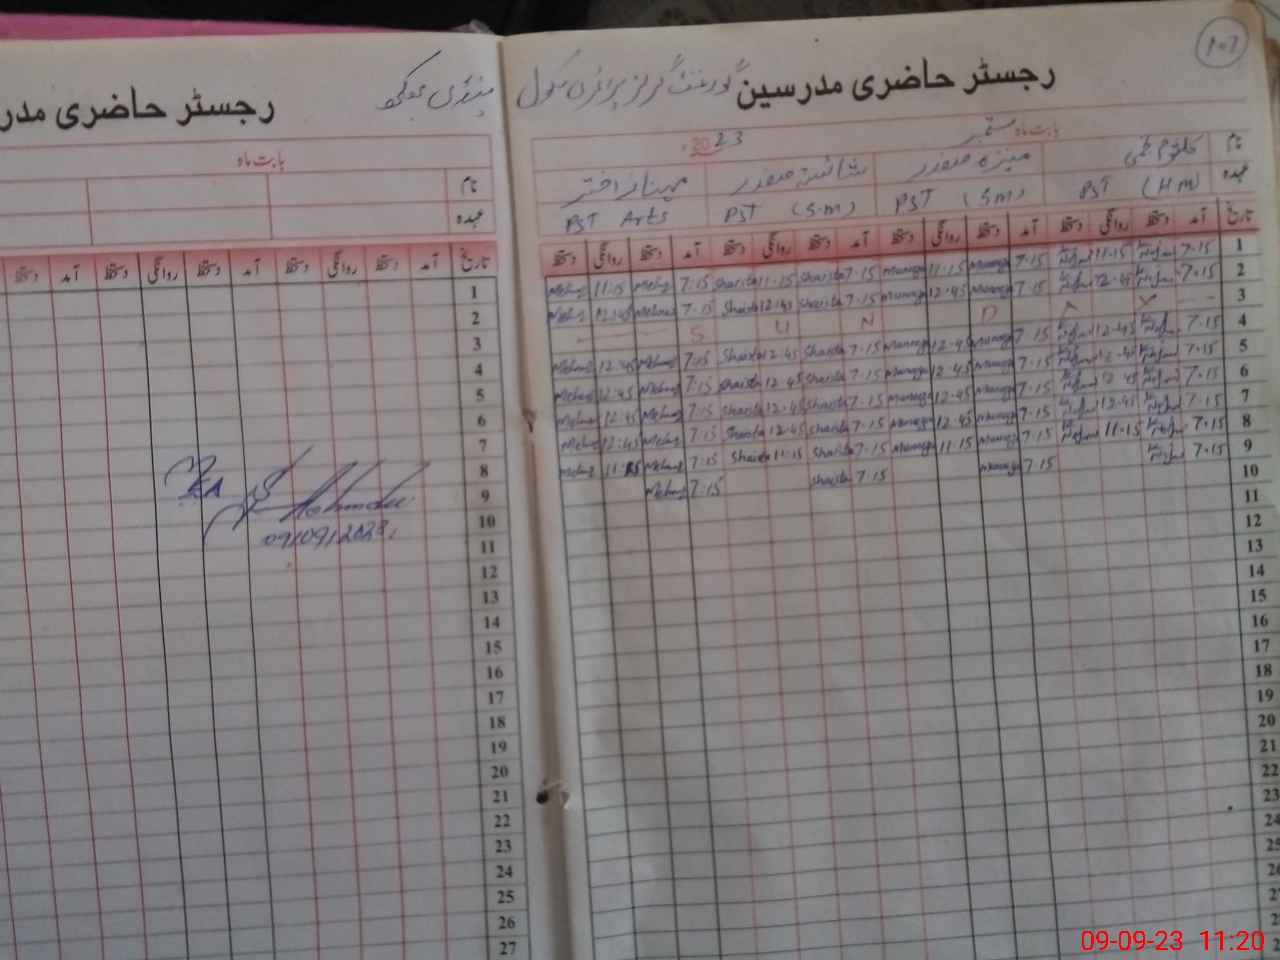 107
رجسٹر حاضری مدرسین گورنمنٹ گرلز پرائمری سکول
بابت ماہ ستمبر 2023
نام کلثوم منیزہ صفدر شائستہ صفدر مہناز اختر
عہدہ PST (HM) PST (S.m) PST (S.m) PST Arts
تاریخ آمد دستخط روانگی دستخط آمد دستخط روانگی دستخط آمد دستخط روانگی دستخط آمد دستخط روانگی دستخط
1 7.15 11.15 7.15 Muneeza 11.15 Muneeza 7.15 Shaista 11.15 Shaista 7.15 Mehnaz 11.15 Mehnaz
2 7.15 12.45 7.15 Muneeza 12.45 Muneeza 7.15 Shaista 12.45 Shaista 7.15 Mehnaz 12.45 Mehnaz
3 S U N D A Y
4 7.15 12.45 7.15 Muneeza 12.45 Muneeza 7.15 Shaista 12.45 Shaista 7.15 Mehnaz 12.45 Mehnaz
5 7.15 12.45 7.15 Muneeza 12.45 Muneeza 7.15 Shaista 12.45 Shaista 7.15 Mehnaz 12.45 Mehnaz
6 7.15 12.45 7.15 Muneeza 12.45 Muneeza 7.15 Shaista 12.45 Shaista 7.15 Mehnaz 12.45 Mehnaz
7 7.15 12.45 7.15 Muneeza 12.45 Muneeza 7.15 Shaista 12.45 Shaista 7.15 Mehnaz 12.45 Mehnaz
8 7.15 11.15 7.15 Muneeza 11.15 Muneeza 7.15 Shaista 11.15 Shaista 7.15 Mehnaz 11.15 Mehnaz
9 7.15 7.15 Muneeza 7.15 Shaista 7.15 Mehnaz
10
11
12
13
14
15
16
17
18
19
20
21
22
23
24
25
رجسٹر حاضری مدر
بابت ماہ
نام
عہدہ
تاریخ آمد دستخط روانگی دستخط آمد دستخط روانگی دستخط
1
2
3
4
5
6
7
8
9
10
09/09/2023
11
12
13
14
15
16
17
18
19
20
21
22
23
24
25
26
27
09-09-23 11:20